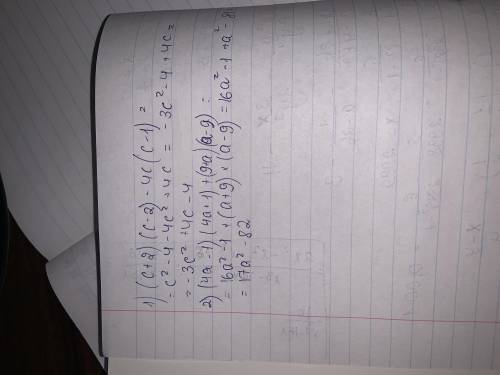 1) (c+2)(c-2) - 4c(c-1)²
= c² - 4 - 4c² + 4c = -3c² - 4 + 4c =
= -3c² + 4c - 4
2) (4a-1)(4a+1) + (9+a)(a-9) =
= 16a² - 1 + (a+9) × (a-9) = 16a² - 1 + a² - 81
= 17a² - 82